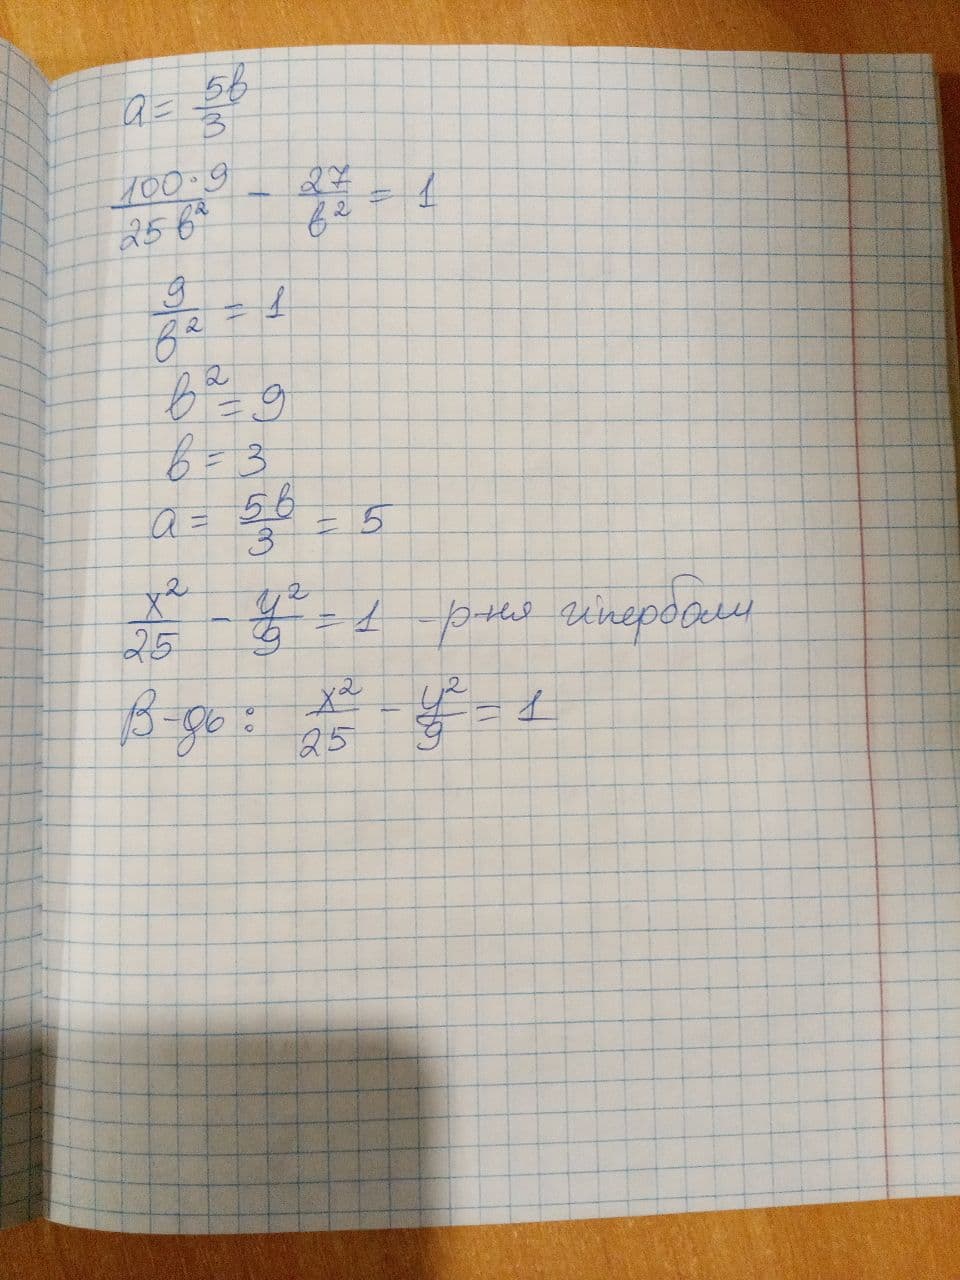 a = 5b/3
100·9/25b² - 27/b² = 1
9/b² = 1
b² = 9
b = 3
a = 5b/3 = 5
x²/25 - y²/9 = 1 - р-ня гіперболи
В-дь: x²/25 - y²/9 = 1